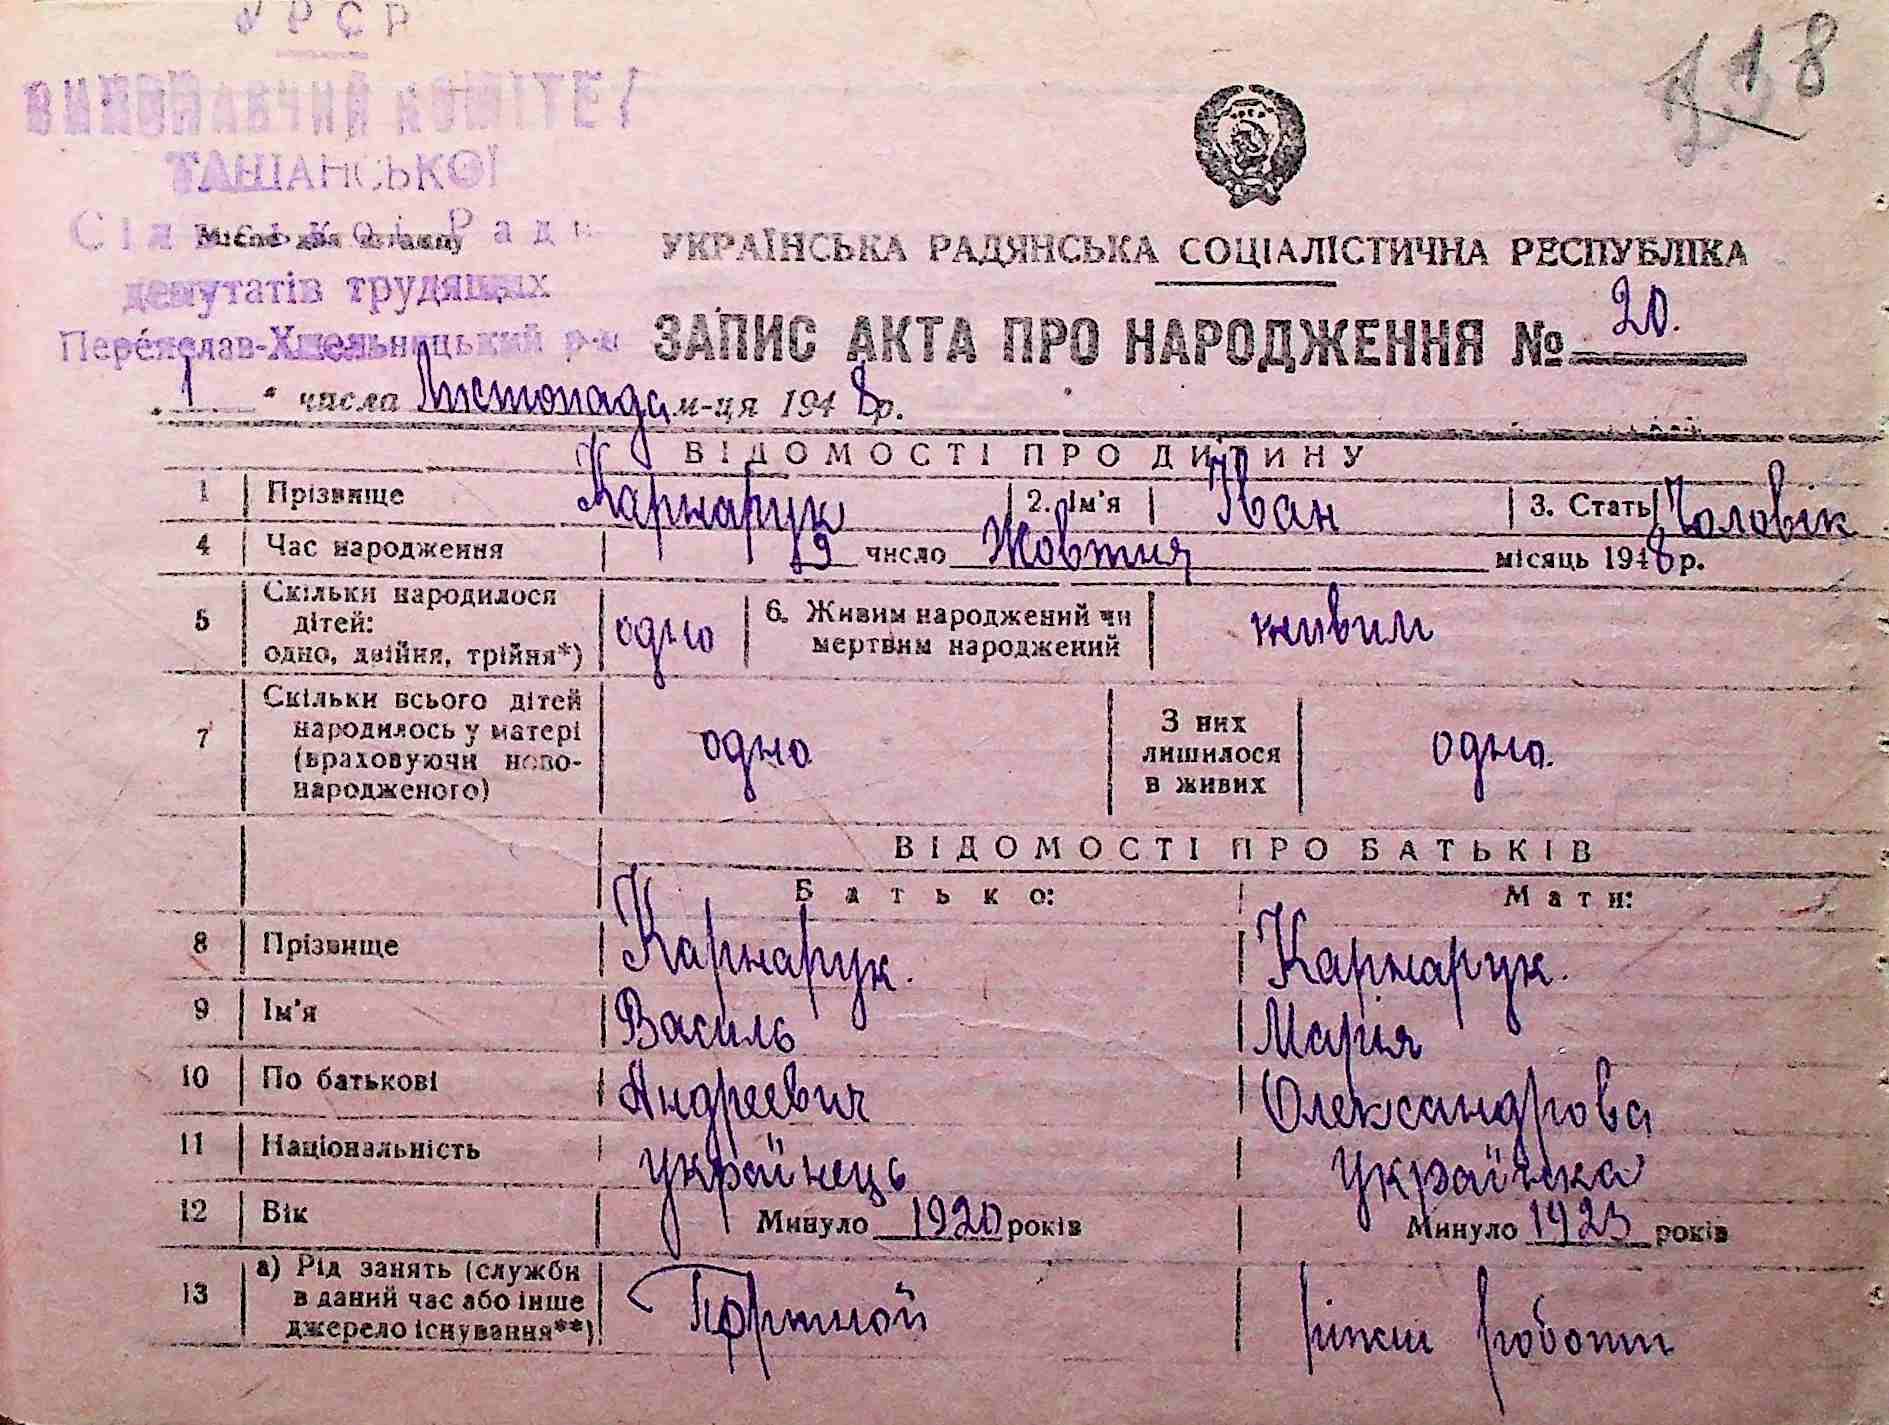 УРСР
ВИКОНАВЧИЙ КОМІТЕТ
ТАШАНСЬКОЇ
Сільської Ради
Місце для штампу
депутатів трудящих
Переяслав-Хмельницький р-н
118
УКРАЇНСЬКА РАДЯНСЬКА СОЦІАЛІСТИЧНА РЕСПУБЛІКА
ЗАПИС АКТА ПРО НАРОДЖЕННЯ № 20.
„1“ числа Листопада м-ця 1948 р.
ВІДОМОСТІ ПРО ДИТИНУ
1 Прізвище Карнарук 2. Ім'я Іван 3. Стать Чоловік
4 Час народження 9 число Жовтня місяць 1948 р.
5 Скільки народилося дітей: одно, двійня, трійня*) одно 6. Живим народжений чи мертвим народжений живим
7 Скільки всього дітей народилось у матері (враховуючи новонародженого) одно З них лишилося в живих одно.
ВІДОМОСТІ ПРО БАТЬКІВ
Батько: Мати:
8 Прізвище Карнарук. Карнарук.
9 Ім'я Василь Марія
10 По батькові Андреевич Олександрова
11 Національність українець українка
12 Вік Минуло 1920 років Минуло 1923 років
13 а) Рід занять (служби в даний час або інше джерело існування**) Портной ріжні роботи